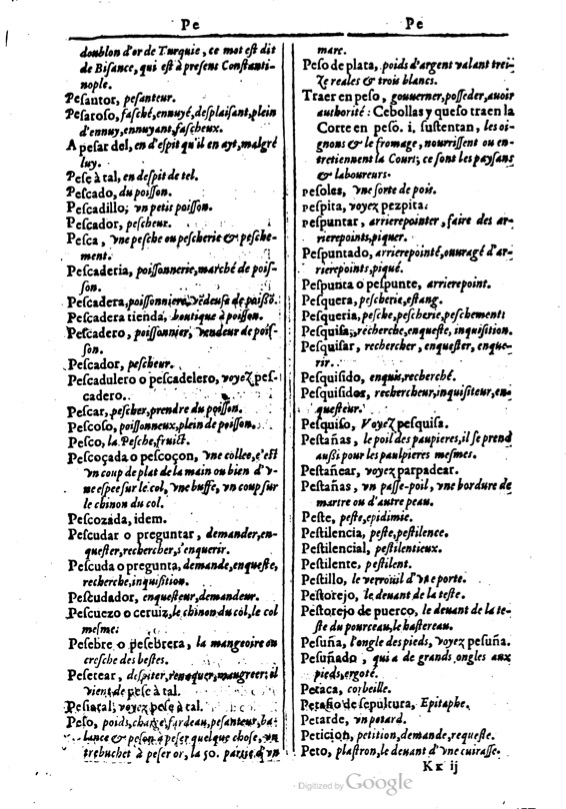 Pe
doublon d'or de Turquie, ce mot eſt dit
de Biſance, qui eſt à preſent Conſtanti-
nople.
Peſantor, peſanteur.
Peſaroſo, faſché, ennuyé, deſplaiſant, plein
d'ennuy, ennuyant, faſcheux.
A peſar del, en d'eſpit qu'il en ayt, malgré
luy.
Peſe à tal, en deſpit de tel.
Peſcado, du poiſſon.
Peſcadillo, vn petit poiſſon.
Peſcador, peſcheur.
Peſca, vne peſche ou peſcherie & peſche-
ment.
Peſcaderia, poiſſonnerie, marché de poiſ-
ſon.
Peſcadera, poiſſonniere, vẽdeuſe de poiſſõ.
Peſcadera tienda, boutique à poiſſon.
Peſcadero, poiſſonnier, vendeur de poiſ-
ſon.
Peſcador, peſcheur.
Peſcadulero o peſcadelero, voyez peſ-
cadero.
Peſcar, peſcher, prendre du poiſſon.
Peſcoſo, poiſſonneux, plein de poiſſon.
Peſco, la Peſche, fruict.
Peſcoçada o peſcoçon, vne collee, c'eſt
vn coup de plat de la main ou bien d'v-
ne eſpee ſur le col, vne buffe, vn coup ſur
le chinon du col.
Peſcozada, idem.
Peſcudar o preguntar, demander, en-
queſter, rechercher, s'enquerir.
Peſcuda o pregunta, demande, enqueſte,
recherche, inquiſition.
Peſcudador, enqueſteur, demandeur.
Peſcuezo o ceruiz, le chinon du col, le col
meſme.
Peſebre o peſebrera, la mangeoire ou
creſche des beſtes.
Peſetear, deſpiter, renoquer, maugreer: il
vient de peſe à tal.
Peſiatal, voyez peſe à tal.
Peſo, poids, charge, fardeau, peſanteur, ba-
lance & peſon à peſer quelque choſe, vn
trebuchet à peſer or, la 50. partie d'vn
Pe
marc.
Peſo de plata, poids d'argent valant trei-
ze reales & trois blancs.
Traer en peſo, gouuerner, poſſeder, auoir
authorité: Cebollas y queſo traen la
Corte en peſo. i. ſuſtentan, les oi-
gnons & le fromage, nourriſſent ou en-
tretiennent la Cour; ce ſont les payſans
& laboureurs.
peſoles, vne ſorte de pois.
peſpita, voyez pezpita.
reſpuntar, arrierepointer, faire des ar-
rierepoints, piquer.
Peſpuntado, arrierepointé, ouuragé d'ar-
rierepoints, piqué.
Peſpunta o peſpunte, arrierepoint.
Peſquera, peſcherie, eſtang.
Peſqueria, peſche, peſcherie, peſchement:
Peſquiſa, recherche, enqueſte, inquiſition.
Peſquiſar, rechercher, enqueſter, enque-
rir.
Peſquiſido, enquis, recherché.
Peſquiſidos, rechercheur, inquiſiteur, en-
queſteur.
Peſquiſo, Voyez peſquiſa.
Peſtañas, le poil des paupieres, il ſe prend
auſſi pour les paulpieres meſmes.
Peſtañear, voyez parpadear.
Peſtañas, vn paſſe-poil, vne bordure de
martre ou d'autre peau.
Peſte, peſte, epidimie.
Peſtilencia, peſte, peſtilence.
Peſtilencial, peſtilentieux.
Peſtilente, peſtilent.
Peſtillo, le verrouil d'vne porte.
Peſtorejo, le deuant de la teſte.
Peſtorejo de puerco, le deuant de la te-
ſte du pourceau, le haſtereau.
Peſuña, l'ongle des pieds, voyez peſuña.
Peſuñado, qui a de grands ongles aux
pieds, ergoté.
Petaca, corbeille.
Petaſio de ſepultura, Epitaphe.
Petarde, vn petard.
Peticion, petition, demande, requeſte.
Peto, plaſtron, le deuant d'vne cuiraſſe.
Kk ij
Digitized by Google